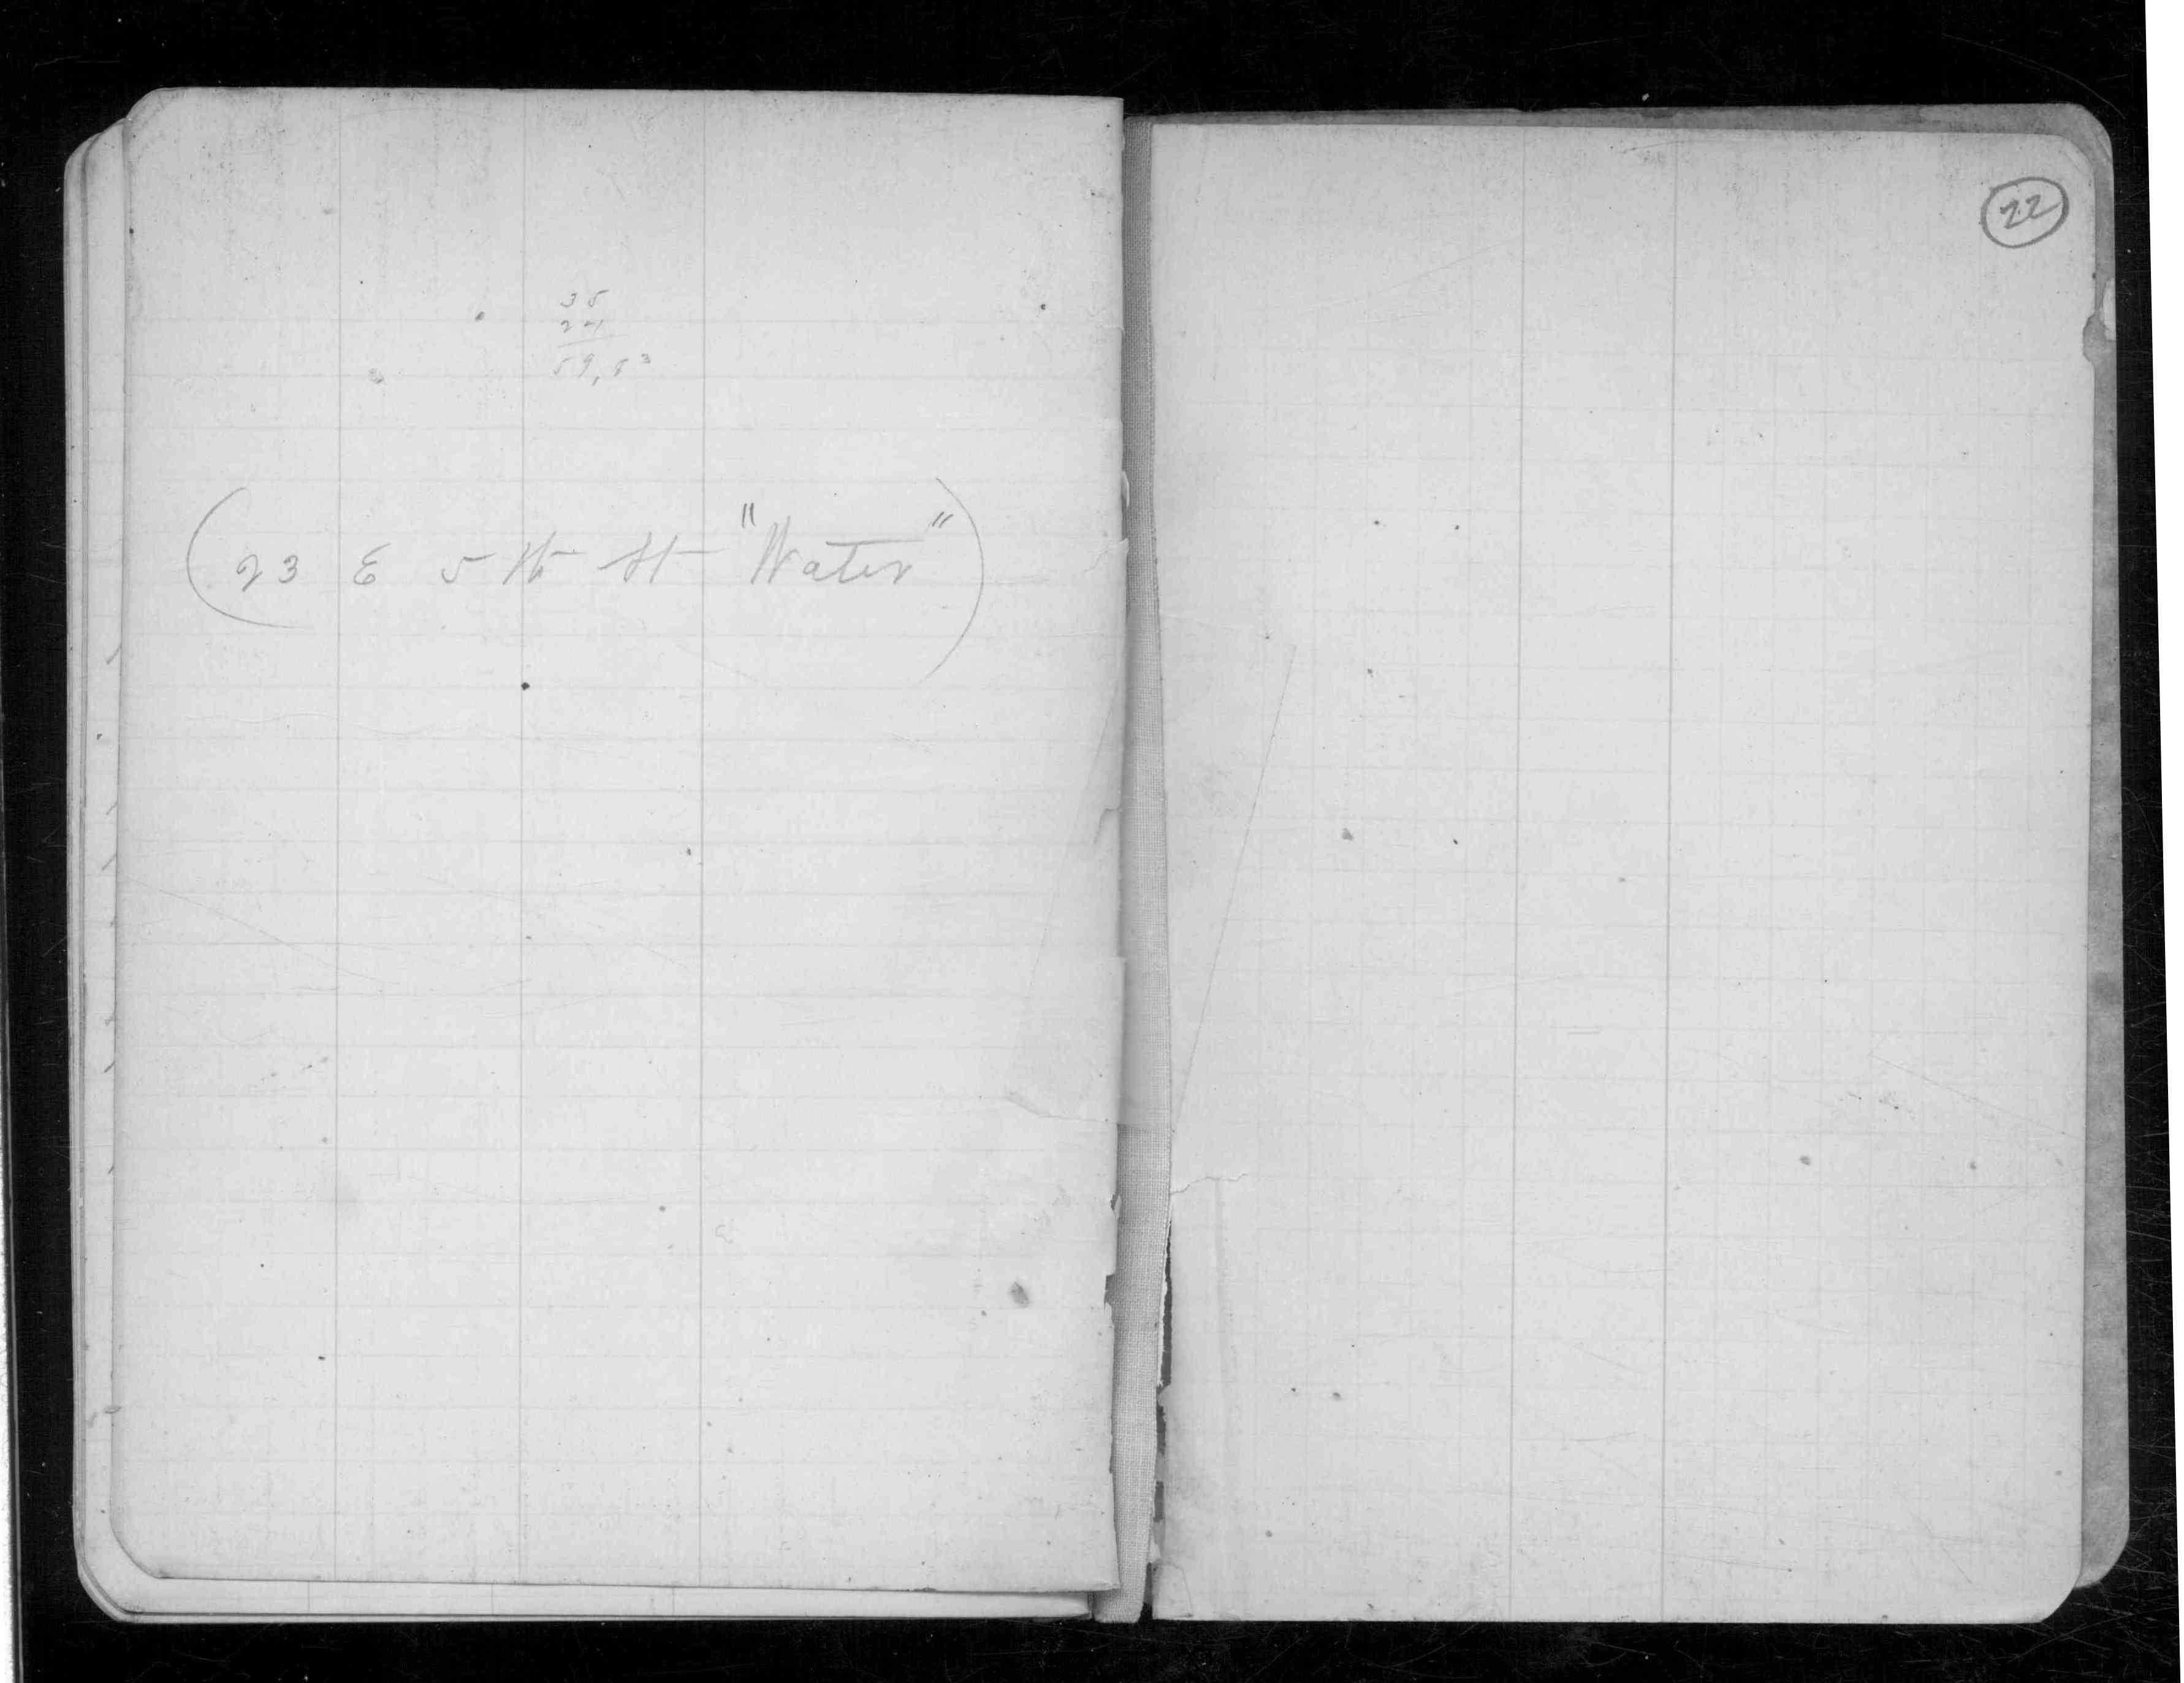 35
24
59,53
(23 E 5th St "Water")
22